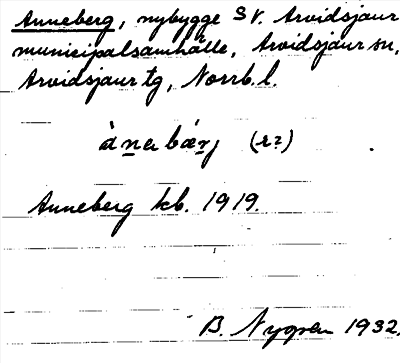 Anneberg, nybygge SV. Arvidsjaur
municipalsamhälle, Arvidsjaur sn,
Arvidsjaur tg, Norrb. l.
Anneberg kb. 1919.
B. Nygren 1932.